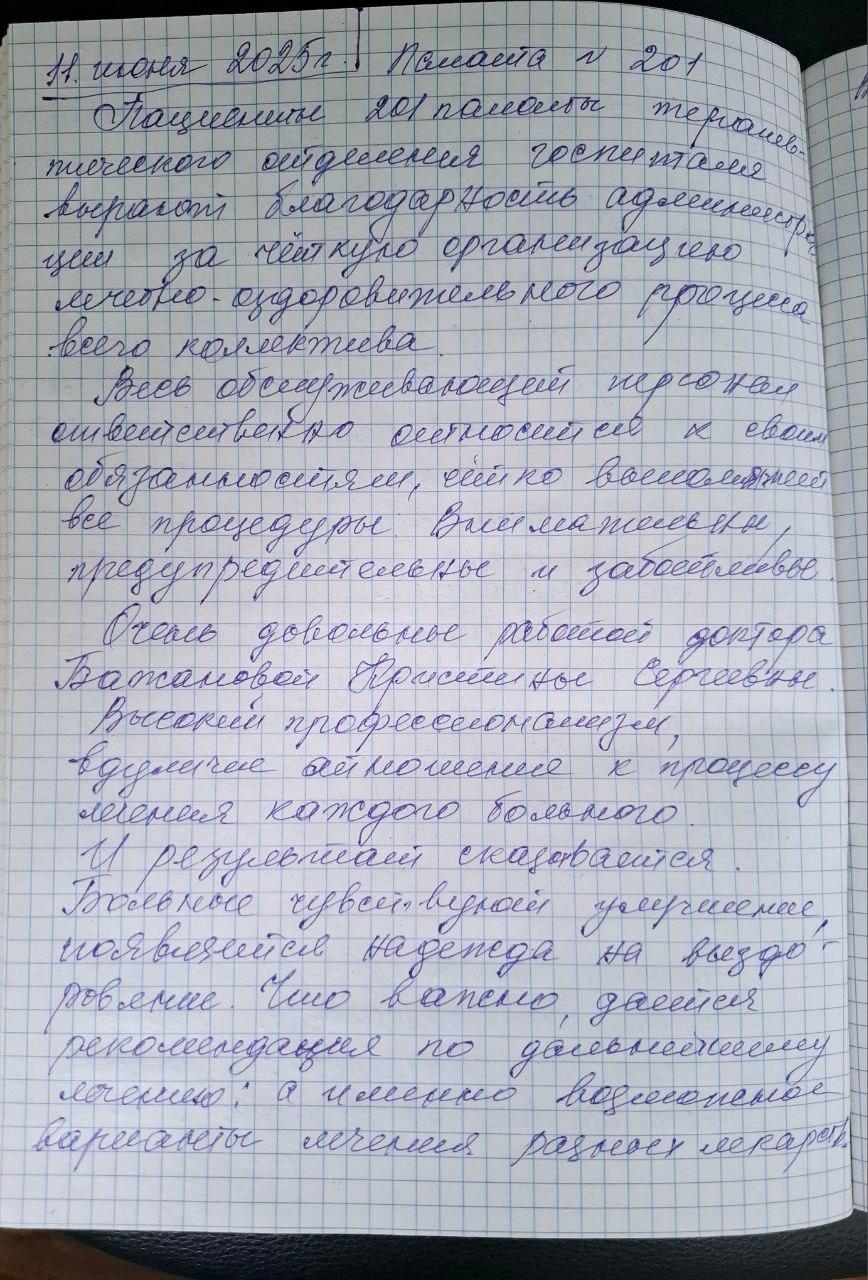 11. июня 2025г. Палата № 201
Пациенты 201 палаты терапев-
тического отделения госпиталя
выражают благодарность администра-
ции за чёткую организацию
лечебно-оздоровительного процесса
всего коллектива.
Весь обслуживающий персонал
ответственно относится к своим
обязанностям, чётко выполняет
все процедуры. Внимательны,
предупредительные и заботливые.
Очень довольные работой доктора
Бажановой Кристины Сергеевны.
Высокий профессионализм,
вдумчивое отношение к процессу
лечения каждого больного.
И результат сказывается.
Больные чувствуют улучшение,
появляется надежда на выздо-
ровление. Что важно, даётся
рекомендация по дальнейшему
лечению: а именно возможные
варианты лечения разных лекарств.